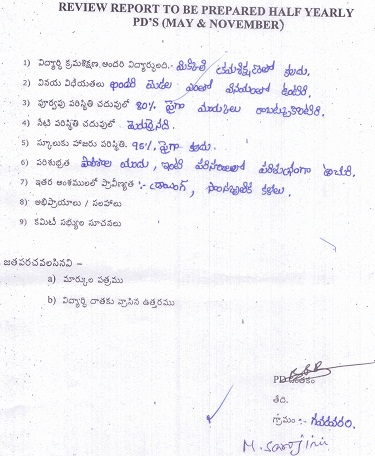 REVIEW REPORT TO BE PREPARED HALF YEARLY
PD'S (MAY & NOVEMBER)
1) విద్యార్థి క్రమశిక్షణ అందరి విద్యార్థులది.- మిక్కిలి క్రమశిక్షణలో కలదు.
2) వినయ విధేయతలు అందరి యెడల ఎంతో వినయంతో ఉంటారి.
3) పూర్వపు పరిస్థితి చదువులో 80% పైగా మార్కులు రాబట్టుకొంటిరి.
4) నేటి పరిస్థితి చదువులో మెరుగైనది.
5) స్కూలుకు హాజరు పరిస్థితి. 95% పైగా కలదు.
6) పరిశుభ్రత పాఠశాల యందు, ఇంటి పరిసరాలలో పరిశుభ్రంగా ఉంచును.
7) ఇతర అంశములలో ప్రావీణ్యత :- డ్రాయింగ్, సాంస్కృతిక కళలు.
8) అభిప్రాయాలు / సలహాలు
9) కమిటీ సభ్యుల సూచనలు
జతపరచవలసినవి –
a) మార్కుల పత్రము
b) విద్యార్థి దాతకు వ్రాసిన ఉత్తరము
PD సంతకం
తేది.
గ్రామం :- గవరవరం.
M. Sarojini